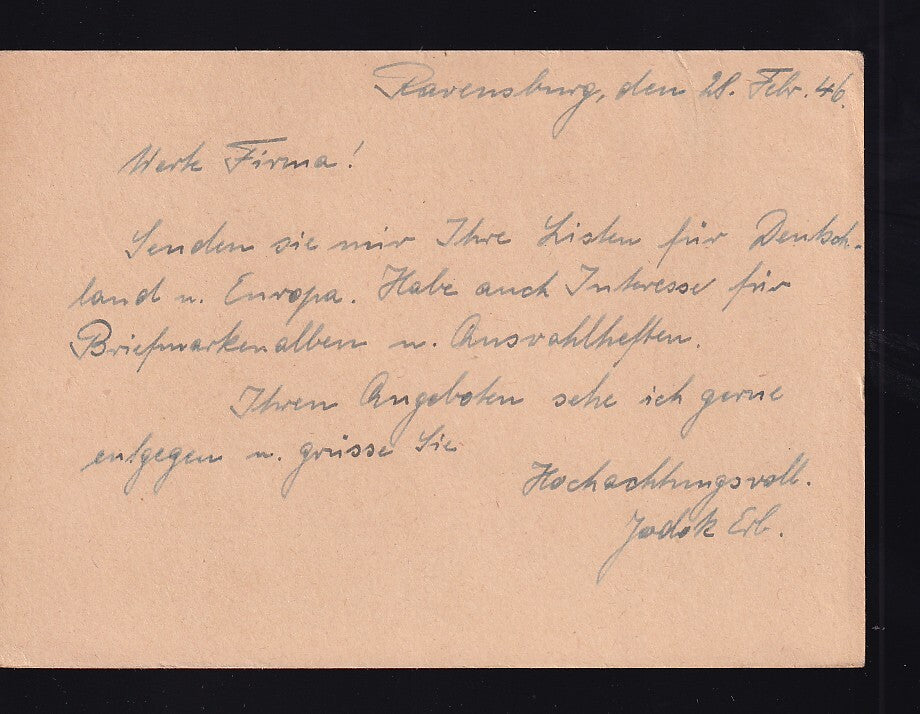 Ravensburg, den 28. Febr. 46.
Werte Firma!
Senden sie mir Ihre Listen für Deutsch-
land u. Europa. Habe auch Interesse für
Briefmarkenalben u. Auswahlheften.
Ihren Angeboten sehe ich gerne
entgegen u. grüsse Sie
Hochachtungsvoll.
Jodok Erb.